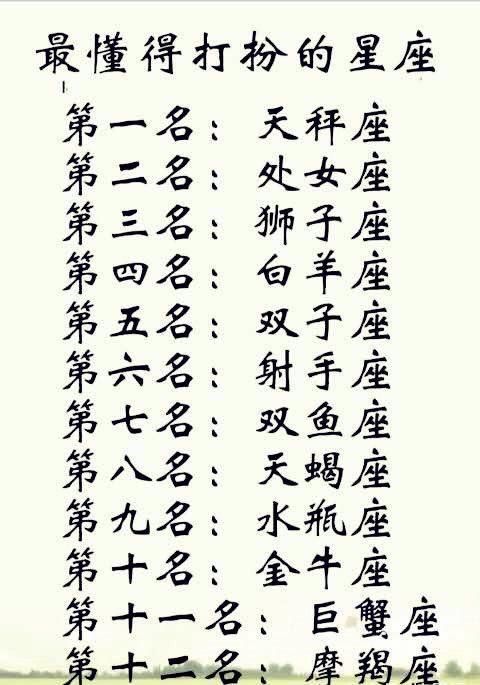 最懂得打扮的星座
第一名：天秤座
第二名：处女座
第三名：狮子座
第四名：白羊座
第五名：双子座
第六名：射手座
第七名：双鱼座
第八名：天蝎座
第九名：水瓶座
第十名：金牛座
第十一名：巨蟹座
第十二名：摩羯座